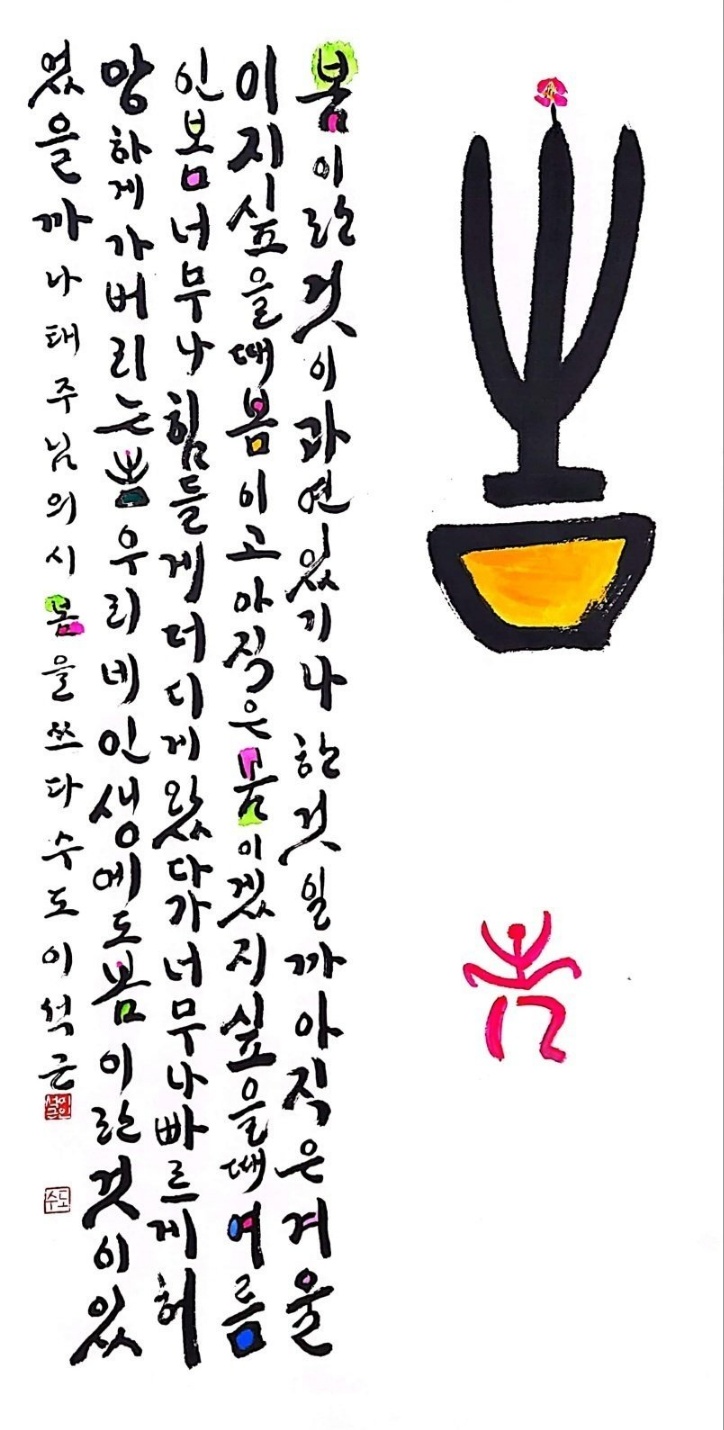 봄이란것이과연있기나한것일까아직은겨울
이지싶을때봄이고아직은봄이겠지싶을때여름
인봄너무나힘들게더디게왔다가너무나빠르게허
망하게가버리는 우리네인생에도봄이란것이있
었을까 나태주님의시 봄을쓰다 수도이석근
이인석근
수도